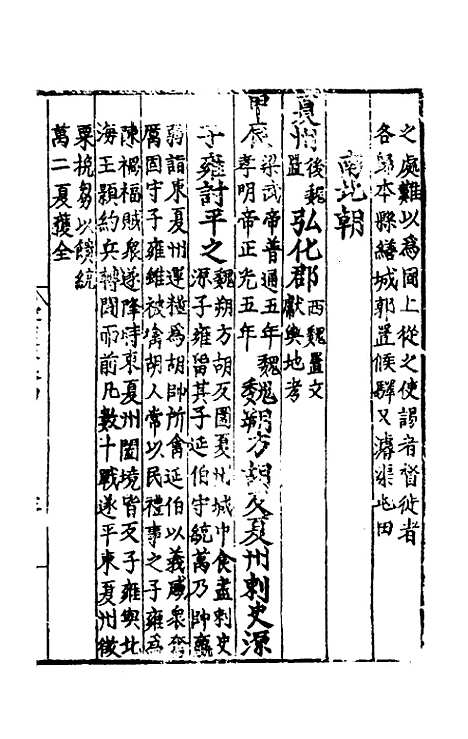 之處難以爲固上從之使謁者督徙者
各歸本縣繕城郭置候驛又濬渠屯田
南北朝
夏州後魏置弘化郡西魏置文獻輿地考
甲辰梁武帝普通五年魏孝明帝正光五年魏朔方胡反夏州刺史源
子雍討平之魏朔方胡反圍夏州城中食盡刺史
源子雍留其子延伯守統萬乃帥羸
弱詣東夏州運糧爲胡帥所禽延伯以義感衆奮
厲固守子雍雖被擒胡人常以民禮事之子雍爲
陳禍福賊衆遂降時東夏州闔境皆反子雍與北
海王顥約兵轉鬪而前凡數十戰遂平東夏州徵
粟挽芻以餽統
萬二夏獲全